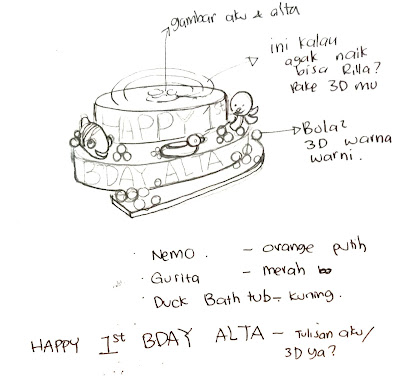 gambar aku & alta
ini kalau
agak naik
bisa Rilla?
pake 3D mu
HAPPY 1
Bola2
3D warna
warni.
BDAY ALTA
· Nemo. - orange putih
· Gurita - merah
· Duck Bath tub - kuning.
HAPPY 1st BDAY ALTA - Tulisan aku/
3D ya?